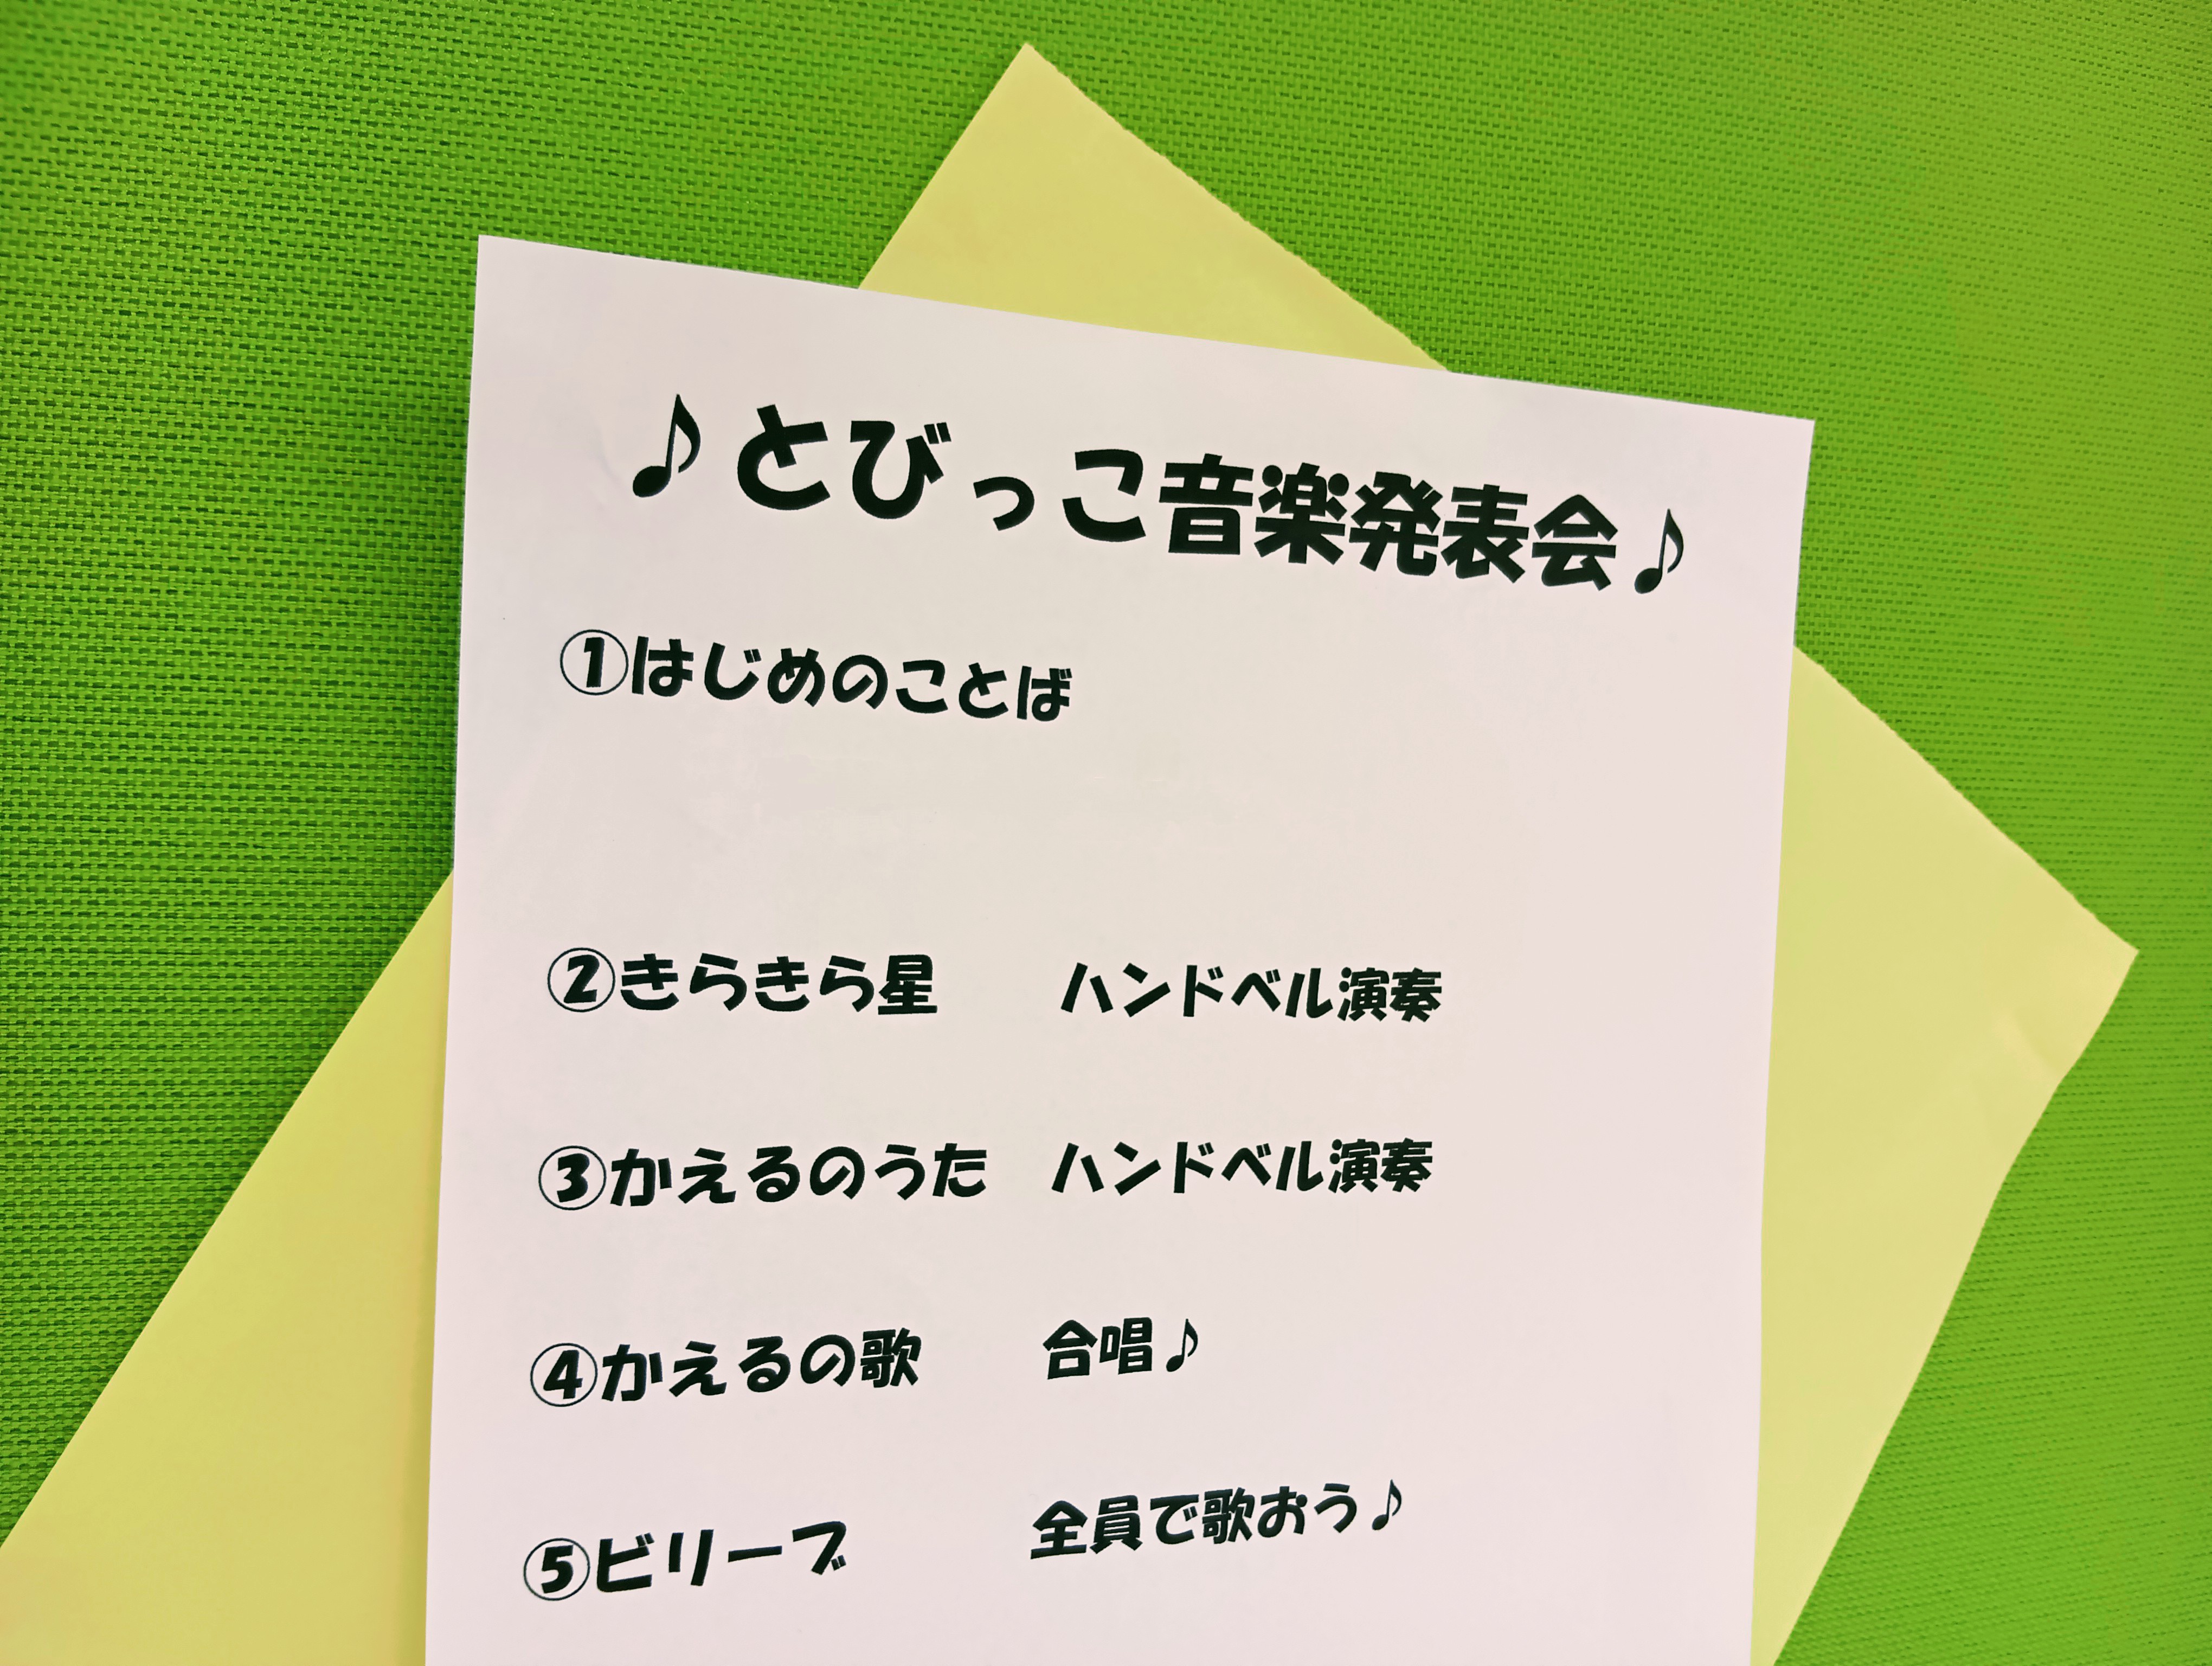 ♪とびっこ音楽発表会♪
①はじめのことば
②きらきら星　ハンドベル演奏
③かえるのうた　ハンドベル演奏
④かえるの歌　合唱♪
⑤ビリーブ　全員で歌おう♪